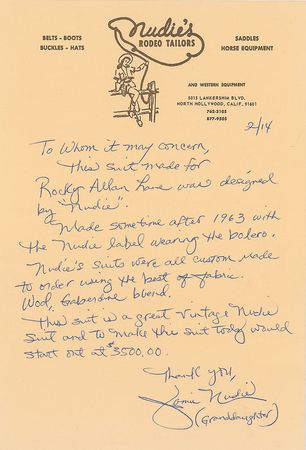 Nudie's
RODEO TAILORS
BELTS - BOOTS
BUCKLES - HATS
SADDLES
HORSE EQUIPMENT
AND WESTERN EQUIPMENT
5015 LANKERSHIM BLVD.
NORTH HOLLYWOOD, CALIF. 91601
762-3105
877-9505
2/14
To Whom it may concern,
This suit made for
Rocky Allan Lane was designed
by "Nudie".
Made sometime after 1963 with
the Nudie label wearing the bolero.
Nudie's suits were all custom made
to order using the best of fabric.
Wool, Gaberdine blend.
This suit is a great vintage Nudie
suit and to make this suit today would
start out at $3500.00.
Thank you,
Jamie Nudie
(Granddaughter)